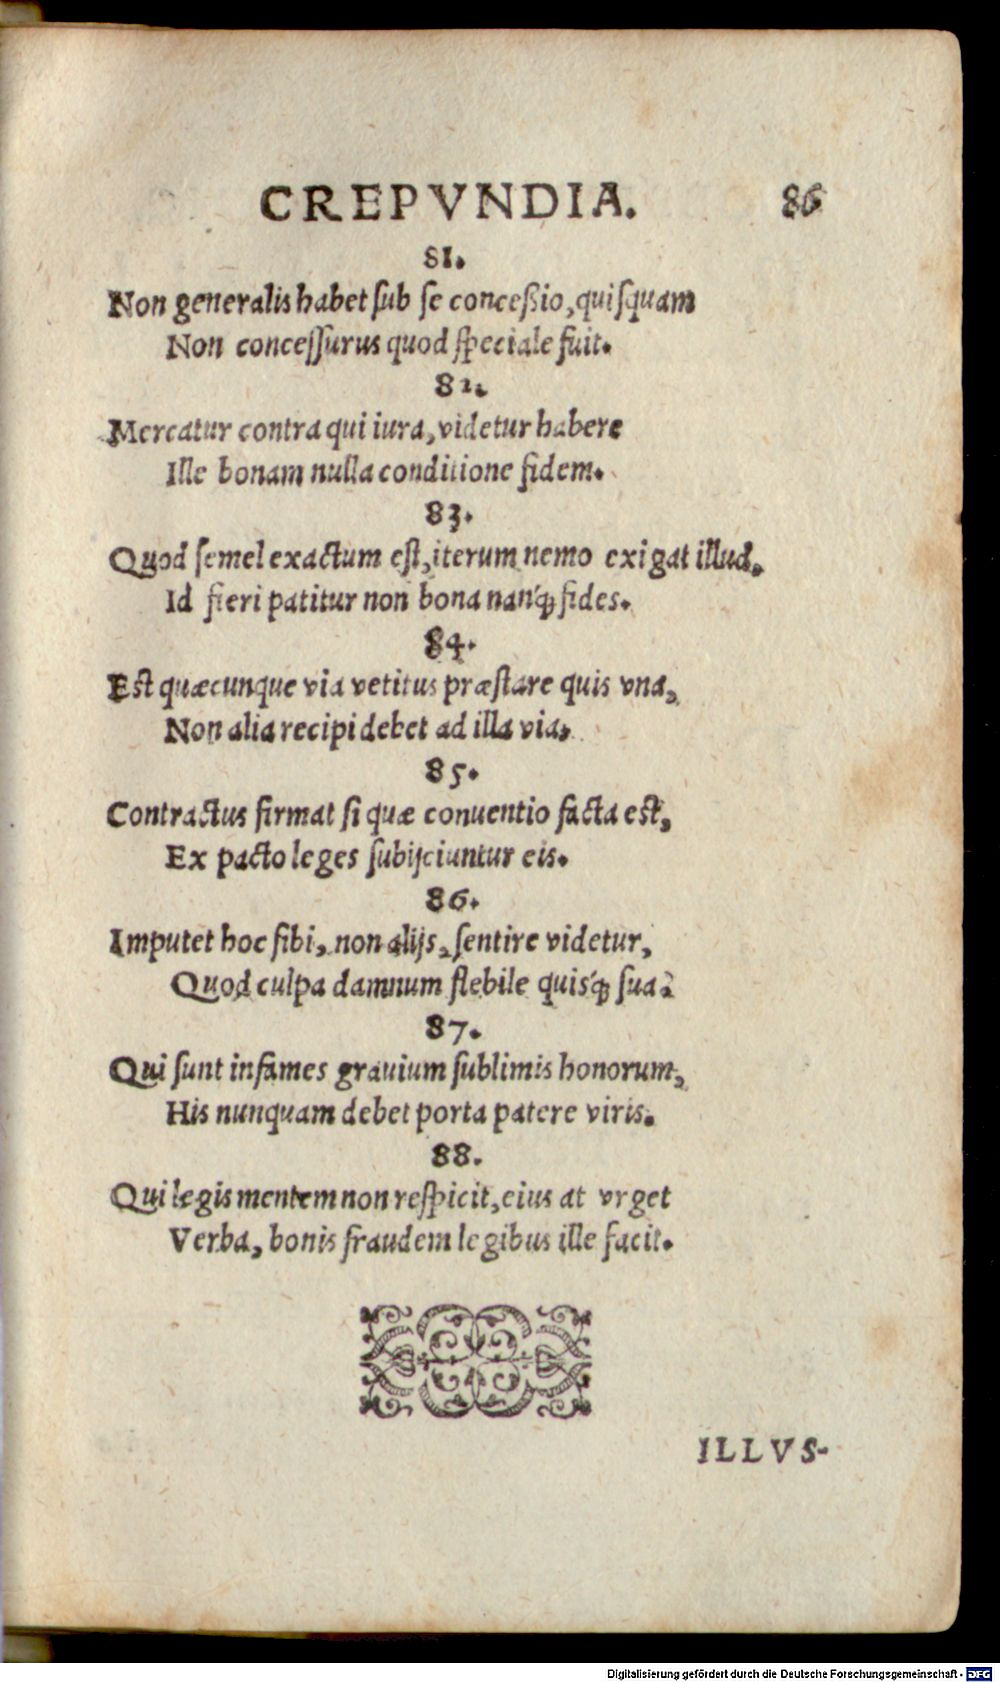 CREPVNDIA. 86
81.
Non generalis habet sub se conceßio, quisquam
Non concessurus quod speciale fuit.
82.
Mercatur contra qui iura, videtur habere
Ille bonam nulla conditione fidem.
83.
Quod semel exactum est, iterum nemo exigat illud,
Id fieri patitur non bona nanq́; fides.
84.
Est quæcunque via vetitus præstare quis vna,
Non alia recipi debet ad illa via.
85.
Contractus firmat si quæ conuentio facta est,
Ex pacto leges subijciuntur eis.
86.
Imputet hoc sibi, non alijs, sentire videtur,
Quod culpa damnum flebile quisq́; sua?
87.
Qui sunt infames grauium sublimis honorum,
His nunquam debet porta patere viris.
88.
Qui legis mentem non respicit, eius at vrget
Verba, bonis fraudem legibus ille facit.
ILLVS-
Digitalisierung gefördert durch die Deutsche Forschungsgemeinschaft - DFG